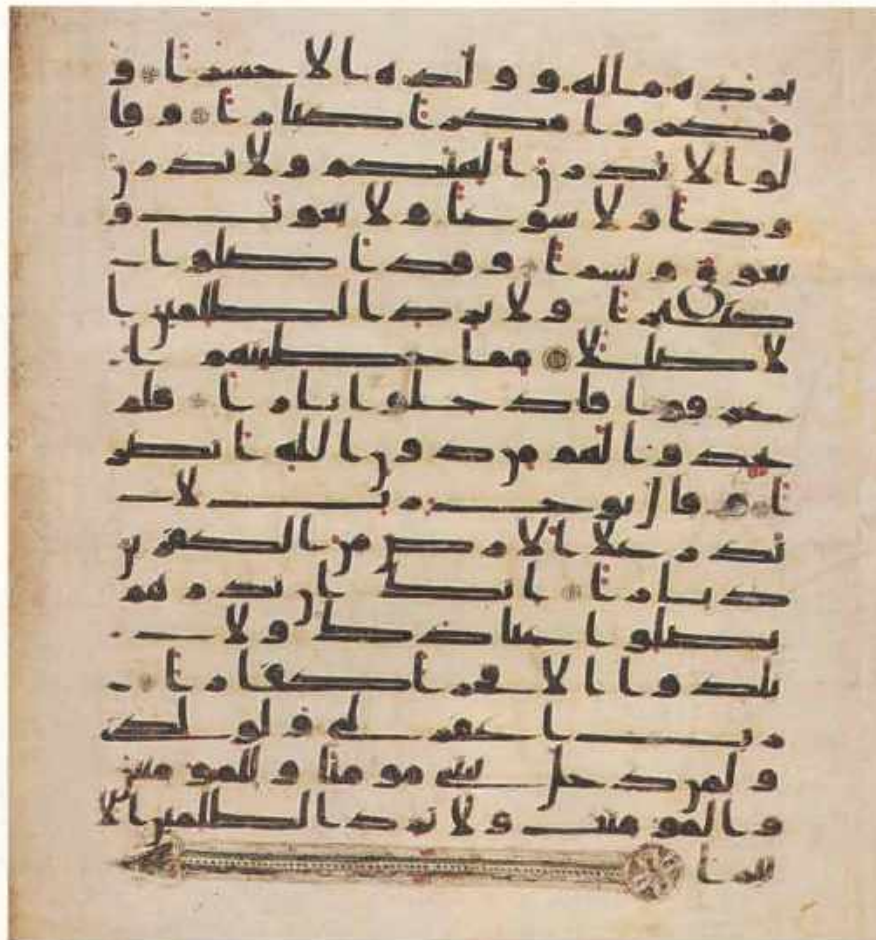 يزده ماله و ولده الا خسرا و
مكروا مكرا كبارا و قا
لوا لا تذرن الهتكم و لا تذرن
ودا و لا سوعا و لا يغوث و
يعوق و نسرا و قد اضلوا
كثيرا و لا تزد الظلمين ا
لا ضللا مما خطيتهم ا
غرقوا فادخلوا نارا فلم
يجدوا لهم من دون الله انصر
ا و قال نوح رب لا
تذر على الارض من الكفرين
ديارا انك ان تذرهم
يضلوا عبادك و لا
يلدوا الا فجرا كفارا
رب اغفر لي و لولدي
و لمن دخل بيتي مومنا و للمومنين
و المومنت و لا تزد الظلمين الا
تبارا